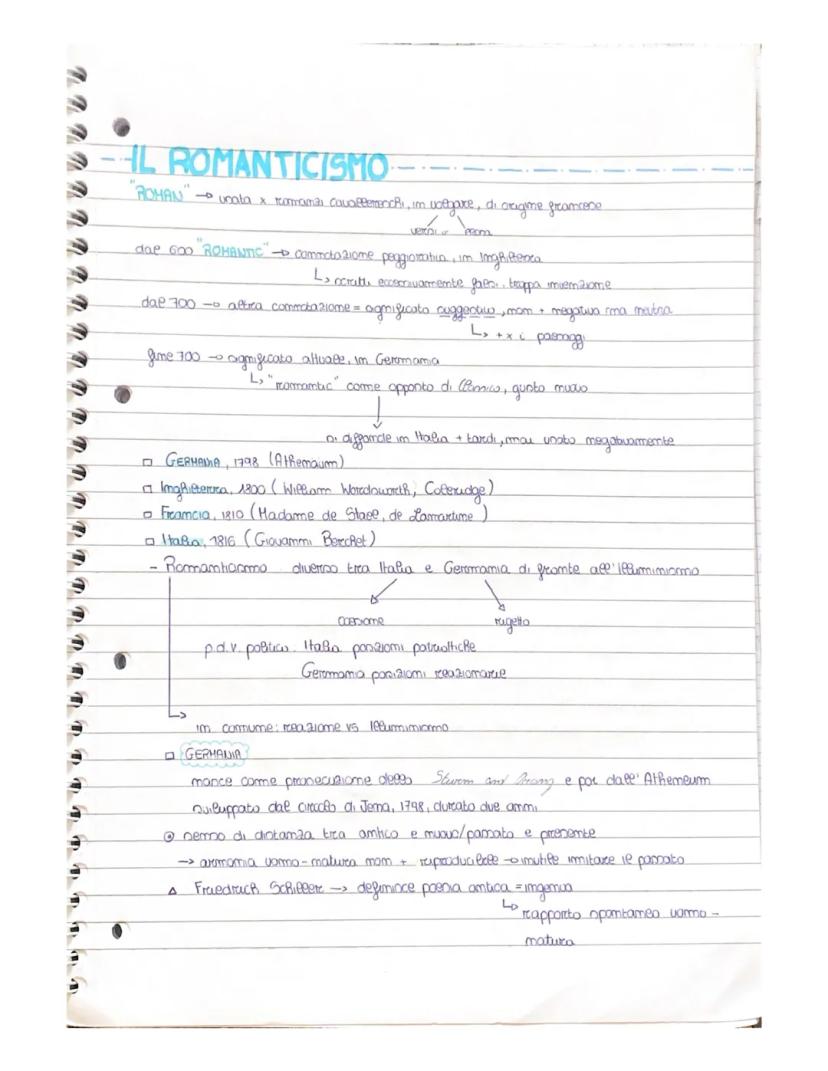 IL ROMANTICISMO
"ROMAN" → usata x romanzi cavallereschi, in volgare, di origine francese
versi o prosa
dal 600 "ROMANTIC" → connotazione peggiorativa, in Inghilterra
↳ scritti eccessivamente falsi, troppa invenzione
dal 700 → altra connotazione = significato suggestivo, non + negativa ma neutra
↳ + x i paesaggi
fine 700 → significato attuale, in Germania
↳ "romantic" come opposto di classico, gusto nuovo
si diffonde in Italia + tardi, mai usato negativamente
□ GERMANIA, 1798 (Athenaum)
□ Inghilterra, 1800 (William Wordsworth, Coleridge)
□ Francia, 1810 (Madame de Stael, de Lamartine)
□ Italia, 1816 (Giovanni Berchet)
- Romanticismo diverso tra Italia e Germania di fronte all'Illuminismo
coesione rigetto
p.d.v. politico Italia posizioni patriottiche
Germania posizioni reazionarie
↳ in comune: reazione vs Illuminismo
□ GERMANIA
nasce come prosecuzione dello Sturm and Drang e poi dall'Atheneum
sviluppato dal circolo di Jena, 1798, durato due anni
◎ senso di distanza tra antico e nuovo/passato e presente
→ armonia uomo-natura non + riproducibile → inutile imitare il passato
△ Friedrich Schiller → definisce poesia antica = ingenua
↳ rapporto spontaneo uomo -
natura